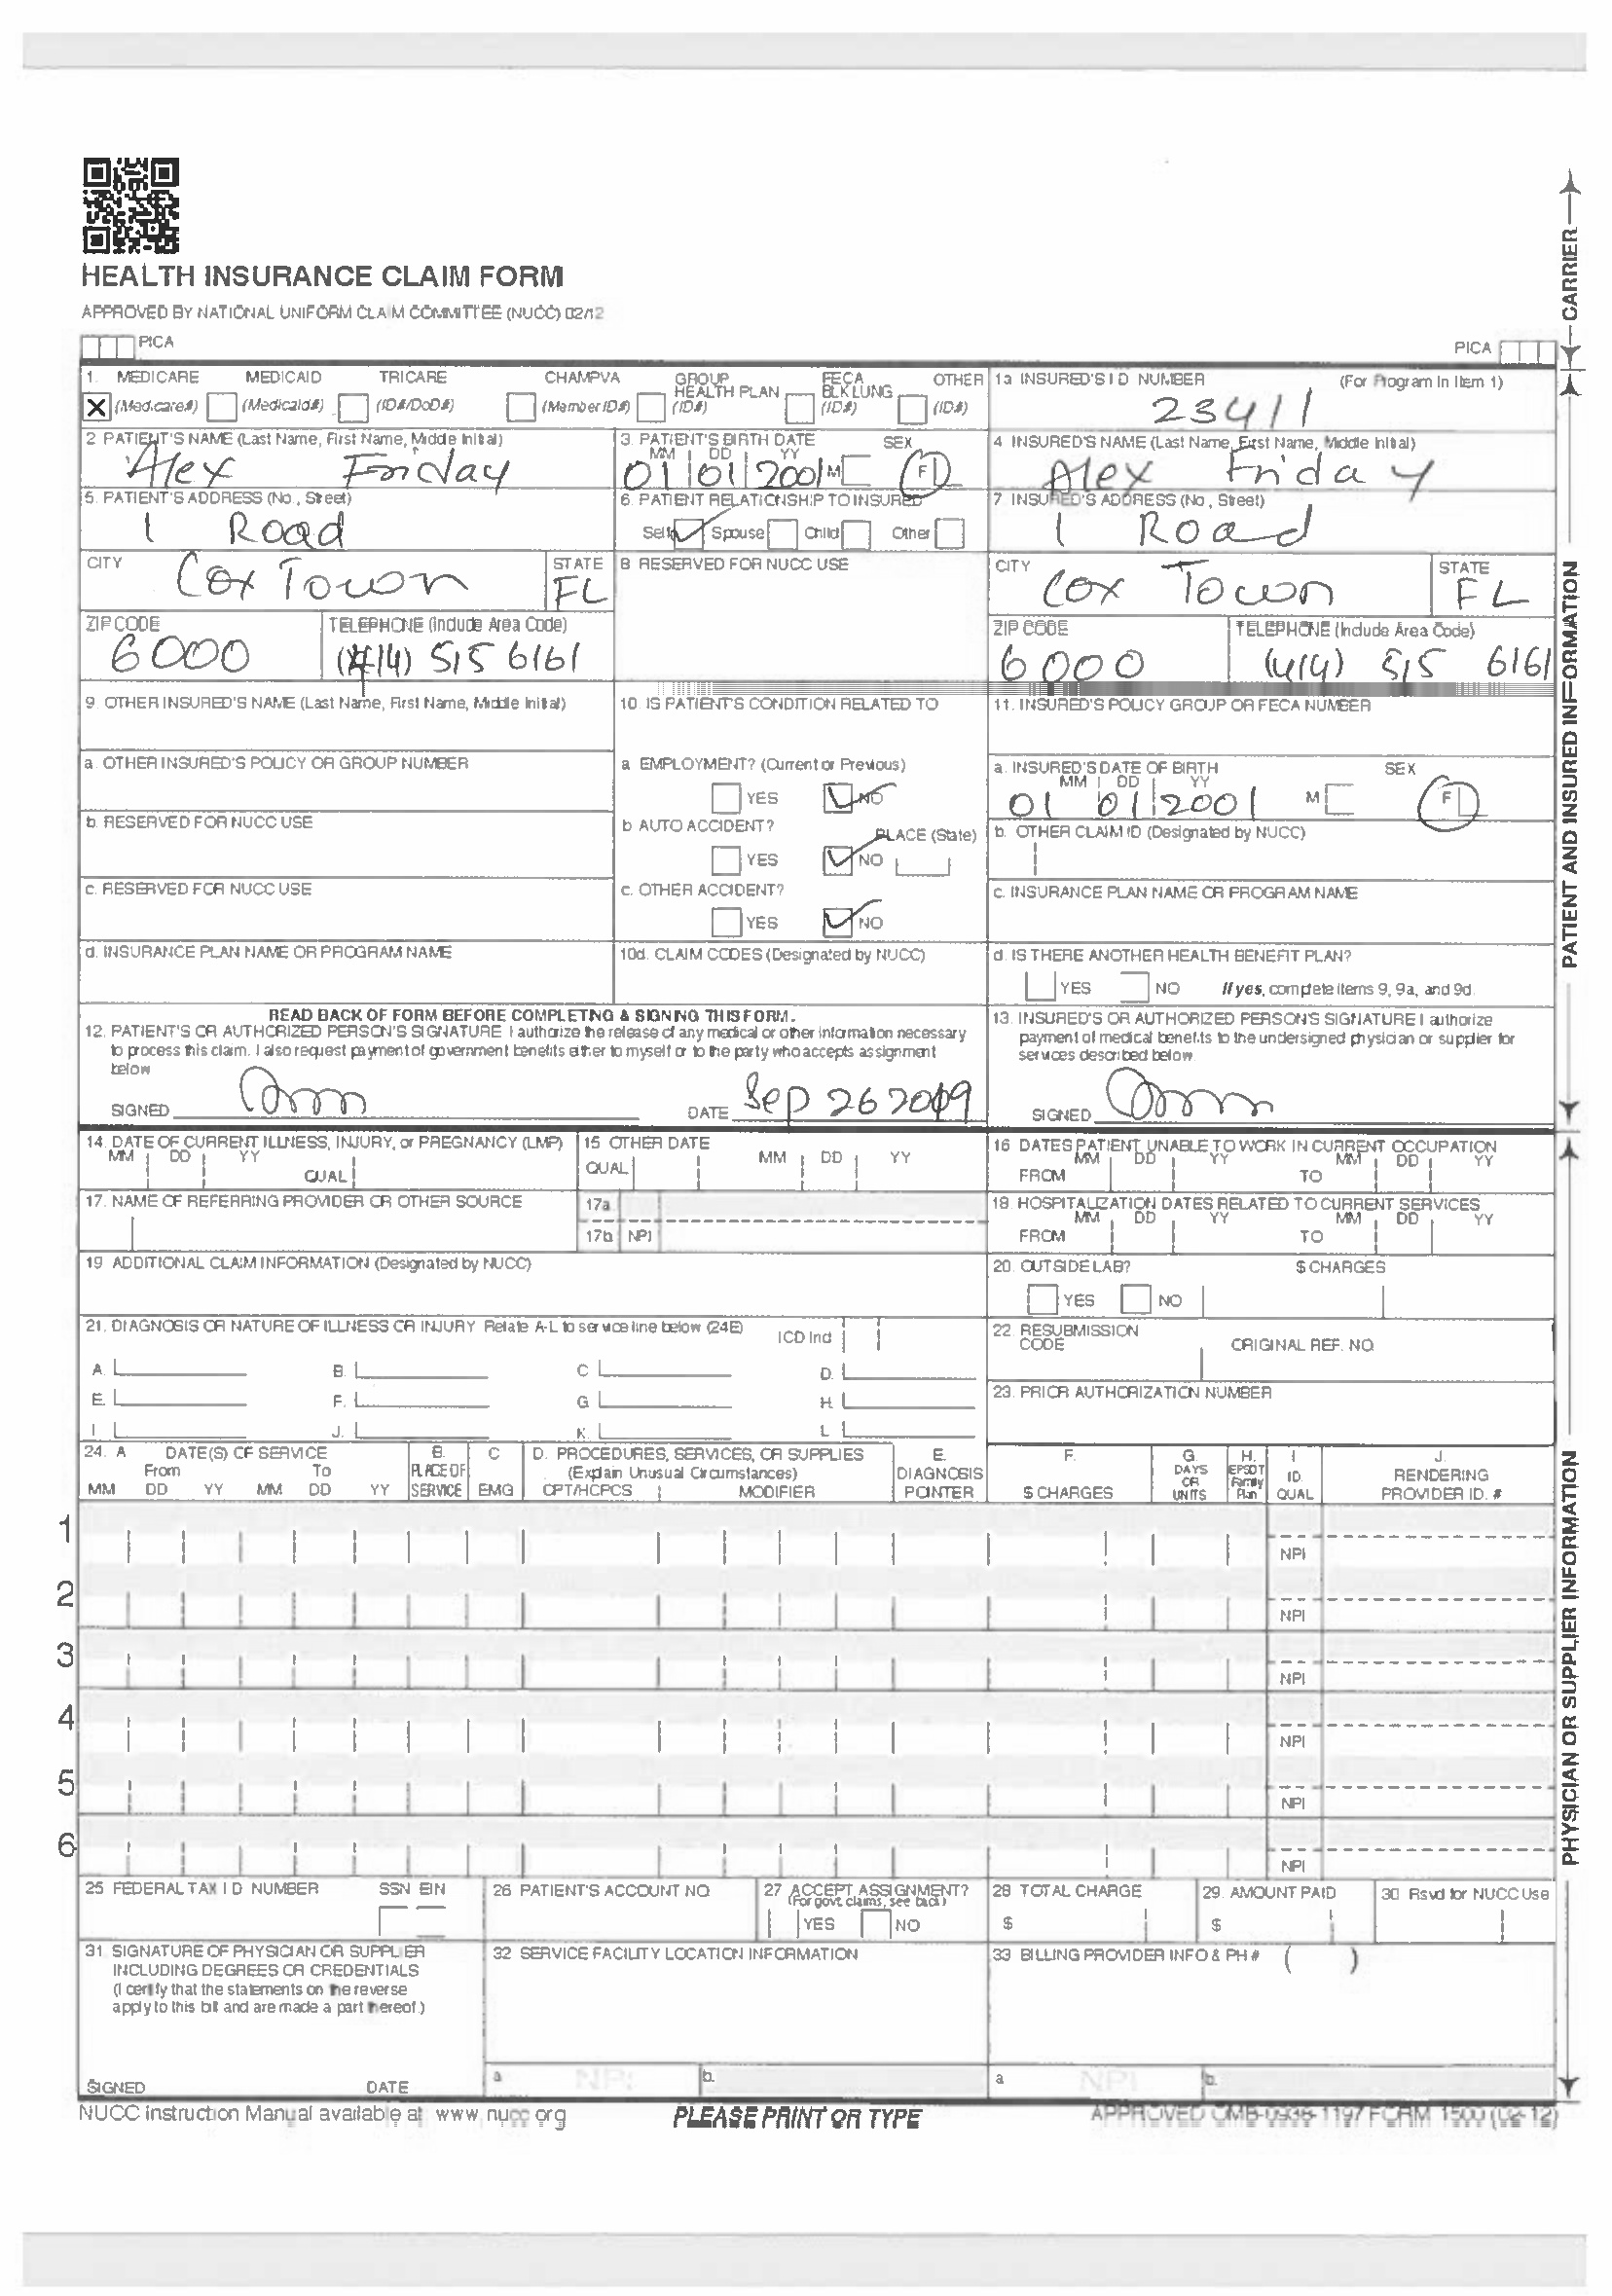 HEALTH INSURANCE CLAIM FORM
APPROVED BY NATIONAL UNIFORM CLAIM COMMITTEE (NUCC) 02/12
PICA
PICA
CARRIER
1. MEDICARE MEDICAID TRICARE CHAMPVA GROUP HEALTH PLAN FECA BLK LUNG OTHER
(Medicare#) (Medicaid#) (ID#/DoD#) (Member ID#) (ID#) (ID#) (ID#)
1a INSURED'S I D NUMBER (For Program in Item 1)
23411
2 PATIENT'S NAME (Last Name, First Name, Middle Initial)
Alex Friday
3. PATIENT'S BIRTH DATE SEX
MM DD YY
01 01 2001 M F
4. INSURED'S NAME (Last Name, First Name, Middle Initial)
Alex Friday
5. PATIENT'S ADDRESS (No, Street)
1 Road
6. PATIENT RELATIONSHIP TO INSURED
Self Spouse Child Other
7. INSURED'S ADDRESS (No, Street)
1 Road
CITY STATE
Cox Town FL
8 RESERVED FOR NUCC USE
CITY STATE
Cox Town FL
ZIP CODE TELEPHONE (Include Area Code)
6000 (414) 515 6161
ZIP CODE TELEPHONE (Include Area Code)
6000 (414) 515 6161
9. OTHER INSURED'S NAME (Last Name, First Name, Middle Initial)
10. IS PATIENT'S CONDITION RELATED TO
11. INSURED'S POLICY GROUP OR FECA NUMBER
a. OTHER INSURED'S POLICY OR GROUP NUMBER
a EMPLOYMENT? (Current or Previous)
YES NO
a. INSURED'S DATE OF BIRTH SEX
MM DD YY
01 01 2001 M F
b. RESERVED FOR NUCC USE
b AUTO ACCIDENT? PLACE (State)
YES NO
b. OTHER CLAIM ID (Designated by NUCC)
c. RESERVED FOR NUCC USE
c. OTHER ACCIDENT?
YES NO
c. INSURANCE PLAN NAME OR PROGRAM NAME
d. INSURANCE PLAN NAME OR PROGRAM NAME
10d. CLAIM CODES (Designated by NUCC)
d. IS THERE ANOTHER HEALTH BENEFIT PLAN?
YES NO If yes, complete items 9, 9a, and 9d.
READ BACK OF FORM BEFORE COMPLETING & SIGNING THIS FORM.
12. PATIENT'S OR AUTHORIZED PERSON'S SIGNATURE I authorize the release of any medical or other information necessary
to process this claim. I also request payment of government benefits either to myself or to the party who accepts assignment
below
SIGNED DATE Sep 26 2019
13. INSURED'S OR AUTHORIZED PERSON'S SIGNATURE I authorize
payment of medical benefits to the undersigned physician or supplier for
services described below
SIGNED
PATIENT AND INSURED INFORMATION
14. DATE OF CURRENT ILLNESS, INJURY, or PREGNANCY (LMP)
MM DD YY
QUAL
15 OTHER DATE
QUAL MM DD YY
16 DATES PATIENT UNABLE TO WORK IN CURRENT OCCUPATION
MM DD YY MM DD YY
FROM TO
17. NAME OF REFERRING PROVIDER OR OTHER SOURCE
17a
17b NPI
18. HOSPITALIZATION DATES RELATED TO CURRENT SERVICES
MM DD YY MM DD YY
FROM TO
19 ADDITIONAL CLAIM INFORMATION (Designated by NUCC)
20. OUTSIDE LAB? $ CHARGES
YES NO
21. DIAGNOSIS OR NATURE OF ILLNESS OR INJURY Relate A-L to service line below (24E) ICD Ind
A. B. C D.
E. F. G H.
I. J. K. L
22. RESUBMISSION
CODE ORIGINAL REF. NO.
23. PRIOR AUTHORIZATION NUMBER
24. A DATE(S) OF SERVICE B. C D. PROCEDURES, SERVICES, OR SUPPLIES E. F. G. H. I J.
From To PLACE OF (Explain Unusual Circumstances) DIAGNOSIS DAYS OR UNITS EPSDT Family Plan ID. QUAL RENDERING
MM DD YY MM DD YY SERVICE EMG CPT/HCPCS MODIFIER POINTER $ CHARGES PROVIDER ID. #
1 NPI
2 NPI
3 NPI
4 NPI
5 NPI
6 NPI
25 FEDERAL TAX I D NUMBER SSN EIN
26 PATIENT'S ACCOUNT NO.
27 ACCEPT ASSIGNMENT?
(For govt. claims, see back)
YES NO
28 TOTAL CHARGE
$
29. AMOUNT PAID
$
30 Rsvd for NUCC Use
31. SIGNATURE OF PHYSICIAN OR SUPPLIER
INCLUDING DEGREES OR CREDENTIALS
(I certify that the statements on the reverse
apply to this bill and are made a part thereof.)
SIGNED DATE
32 SERVICE FACILITY LOCATION INFORMATION
a NPI b.
33 BILLING PROVIDER INFO & PH # ( )
a NPI b.
PHYSICIAN OR SUPPLIER INFORMATION
NUCC Instruction Manual available at www.nucc.org
PLEASE PRINT OR TYPE
APPROVED OMB-0938-1197 FORM 1500 (02-12)